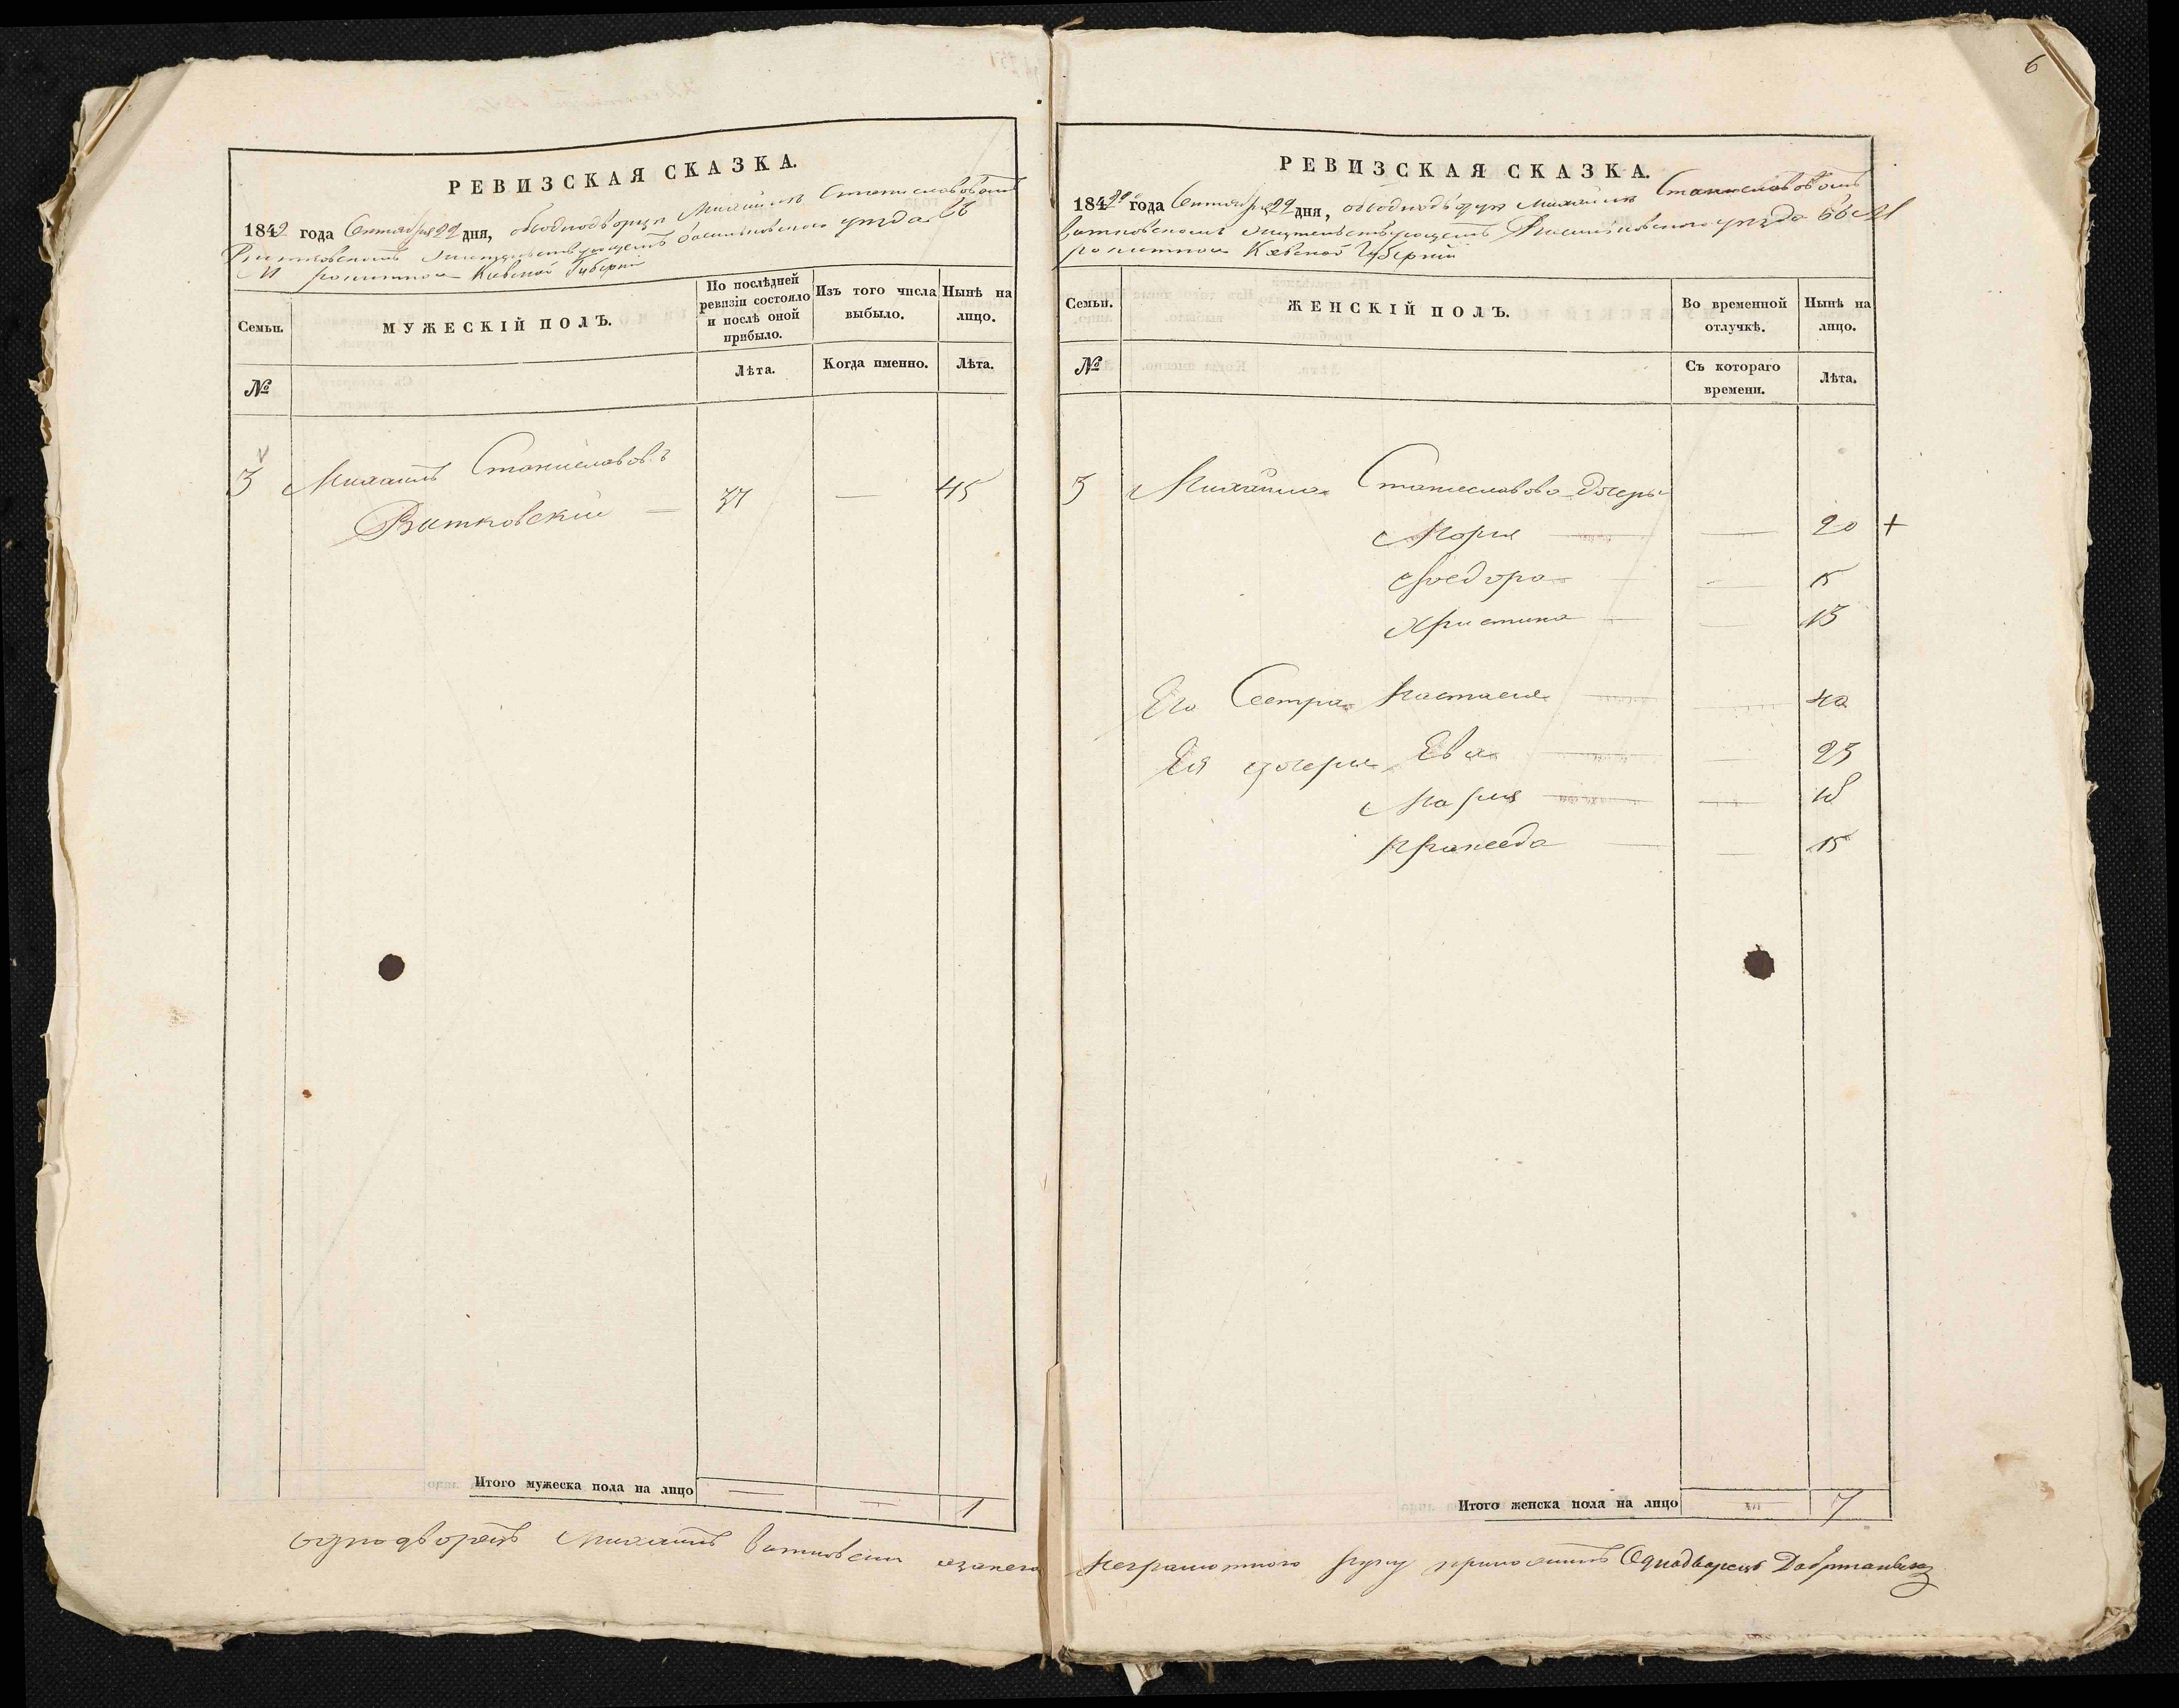 РЕВИЗСКАЯ СКАЗКА.
1842 года Сентября 22 дня, однодворца Михаила Станиславова
Васильковского уезда Въ
М Рокитное Киевской Губернии
Семьи.
МУЖЕСКІЙ ПОЛЪ.
По послѣдней ревизіи состояло и послѣ оной прибыло.
Изъ того числа выбыло.
Нынѣ на лицо.
№
Лѣта.
Когда именно.
Лѣта.
3 Михаилъ Станиславовъ
Витковский — 37 — 45
Итого мужеска пола на лицо 1
однодворецъ Михаилъ Витковский
6
РЕВИЗСКАЯ СКАЗКА.
184 года Сентября 22 дня, однодворца Михаила Станиславова
Васильковского уезда въ М
Рокитное Киевской Губернии
Семьи.
ЖЕНСКІЙ ПОЛЪ.
Во временной отлучкѣ.
Нынѣ на лицо.
№
Съ котораго времени.
Лѣта.
3 Михаила Станиславова дочери
Мария — — 20 +
Федора — — 15
Христина — — 13
Его Сестра Настасия — — 40
Ея дочери Ева — — 23
Мария — — 18
Пракседа — — 15
Итого женска пола на лицо 7
неграмотного руку приложилъ Однодворецъ